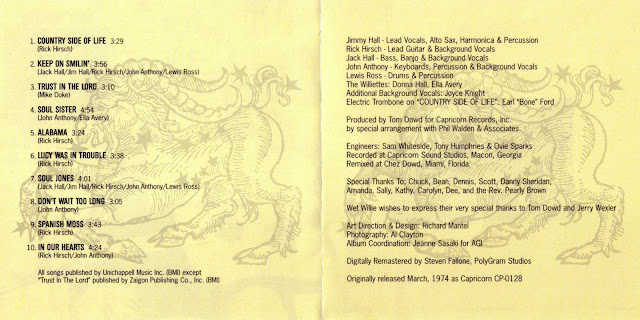 1. COUNTRY SIDE OF LIFE 3:29
(Rick Hirsch)
2. KEEP ON SMILIN' 3:56
(Jack Hall/Jim Hall/Rick Hirsch/John Anthony/Lewis Ross)
3. TRUST IN THE LORD 3:10
(Mike Duke)
4. SOUL SISTER 4:54
(John Anthony/Ella Avery)
5. ALABAMA 3:24
(Rick Hirsch)
6. LUCY WAS IN TROUBLE 3:38
(Rick Hirsch)
7. SOUL JONES 4:01
(Jack Hall/Jim Hall/Rick Hirsch/John Anthony/Lewis Ross)
8. DON'T WAIT TOO LONG 3:05
(John Anthony)
9. SPANISH MOSS 3:43
(Rick Hirsch)
10. IN OUR HEARTS 4:24
(Rick Hirsch/John Anthony)
All songs published by Unichappell Music Inc. (BMI) except
"Trust In The Lord" published by Zaigon Publishing Co., Inc. (BMI)
Jimmy Hall - Lead Vocals, Alto Sax, Harmonica & Percussion
Rick Hirsch - Lead Guitar & Background Vocals
Jack Hall - Bass, Banjo & Background Vocals
John Anthony - Keyboards, Percussion & Background Vocals
Lewis Ross - Drums & Percussion
The Williettes: Donna Hall, Ella Avery
Additional Background Vocals: Joyce Knight
Electric Trombone on "COUNTRY SIDE OF LIFE": Earl "Bone" Ford
Produced by Tom Dowd for Capricorn Records, Inc.
by special arrangement with Phil Walden & Associates.
Engineers: Sam Whiteside, Tony Humphries & Ovie Sparks
Recorded at Capricorn Sound Studios, Macon, Georgia
Remixed at Chez Dowd, Miami, Florida
Special Thanks To: Chuck, Bean, Dennis, Scott, Danny Sheridan,
Amanda, Sally, Kathy, Carolyn, Dee, and the Rev. Pearly Brown
Wet Willie wishes to express their very special thanks to Tom Dowd and Jerry Wexler
Art Direction & Design: Richard Mantel
Photography: Al Clayton
Album Coordination: Jeanne Sasaki for AGI
Digitally Remastered by Steven Fallone, PolyGram Studios
Originally released March, 1974 as Capricorn CP-0128